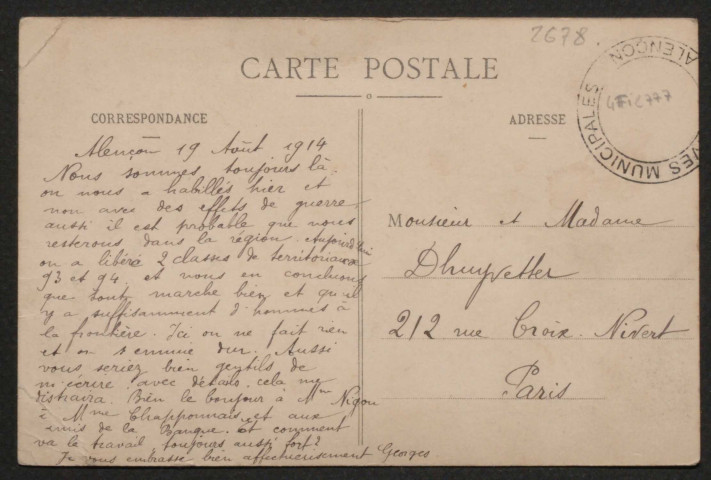 2678
ARCHIVES MUNICIPALES
ALENÇON
4Fi2777
CARTE POSTALE
CORRESPONDANCE
ADRESSE
Alençon 19 Août 1914
Nous sommes toujours là.
on nous a habillés hier et
non avec des effets de guerre
aussi il est probable que nous
resterons dans la région. Aujourd'hui
on a libéré 2 classes de territoriaux
93 et 94. et nous en concluons
que tout marche bien et qu'il
y a suffisamment d'hommes à
la frontière. Ici on ne fait rien
et on s'ennuie dur. Aussi
vous seriez bien gentils de
m'écrire avec détails cela me
distraira. Bien le bonjour à Mme Nigou
à Mme Chapponnais et aux
amis de la Banque. Et comment
va le travail toujours aussi fort?
Je vous embrasse bien affectueusement Georges
Monsieur et Madame
Dhuyvetter
212 rue Croix. Nivert
Paris